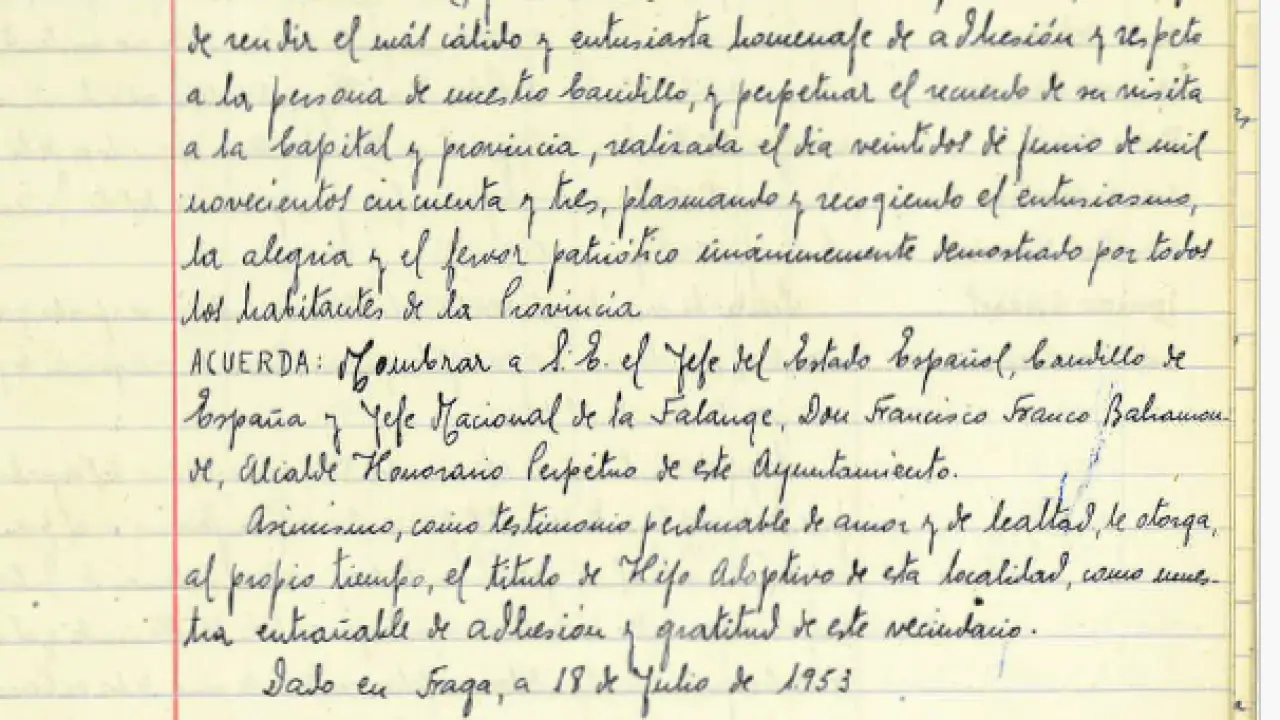 de rendir el más cálido y entusiasta homenaje de adhesión y respeto
a la persona de nuestro Caudillo, y perpetuar el recuerdo de su visita
a la Capital y provincia, realizada el dia veintidos de junio de mil
novecientos cincuenta y tres, plasmando y recogiendo el entusiasmo,
la alegria y el fervor patriótico unánimemente demostrado por todos
los habitantes de la Provincia
ACUERDA: Nombrar a S. E. el Jefe del Estado Español, Caudillo de
España y Jefe Nacional de la Falange, Don Francisco Franco Bahamon-
de, Alcalde Honorario Perpétuo de este Ayuntamiento.
Asimismo, como testimonio perdurable de amor y de lealtad, le otorga,
al propio tiempo, el titulo de Hijo Adoptivo de esta localidad, como mues-
tra entrañable de adhesión y gratitud de este vecindario.
Dado en Fraga, a 18 de Julio de 1953